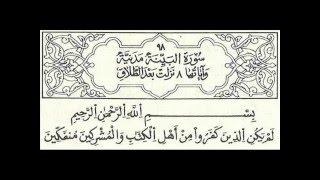 ٩٨
سُورَةُ الْبَيِّنَةِ مَدَنِيَّةٌ
وَآيَاتُهَا ٨ نَزَلَتْ بَعْدَ الطَّلَاقِ
بِسْمِ اللَّهِ الرَّحْمَٰنِ الرَّحِيمِ
لَمْ يَكُنِ الَّذِينَ كَفَرُوا مِنْ أَهْلِ الْكِتَابِ وَالْمُشْرِكِينَ مُنْفَكِّينَ